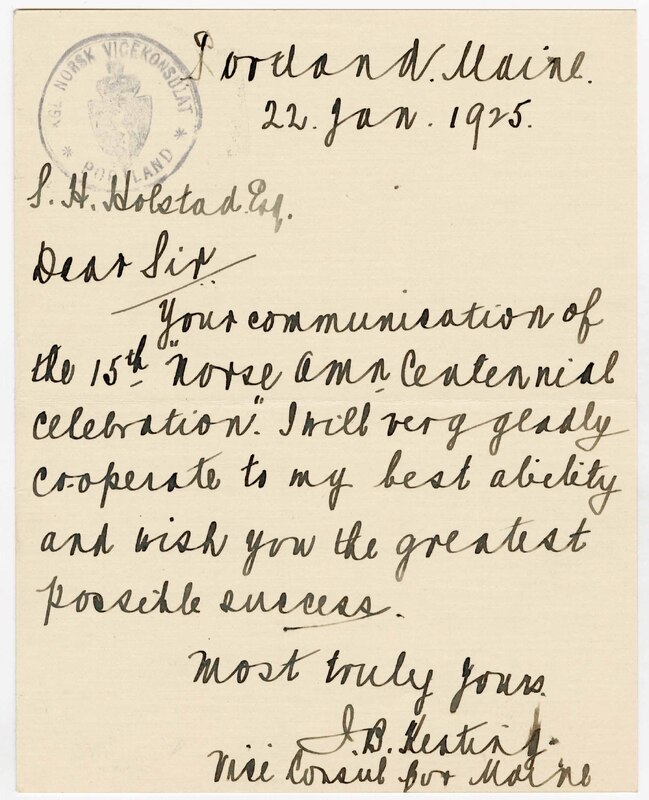 KGL NORSK VICEKONSULAT
* PORTLAND *
Portland. Maine.
22. Jan. 1925.
S. H. Holstad Esq.
Dear Sir
Your communication of
the 15th "Norse Amn Centennial
Celebration". I will very gladly
cooperate to my best ability
and wish you the greatest
possible success.
Most truly yours.
J. B. Keating.
Vice Consul for Maine